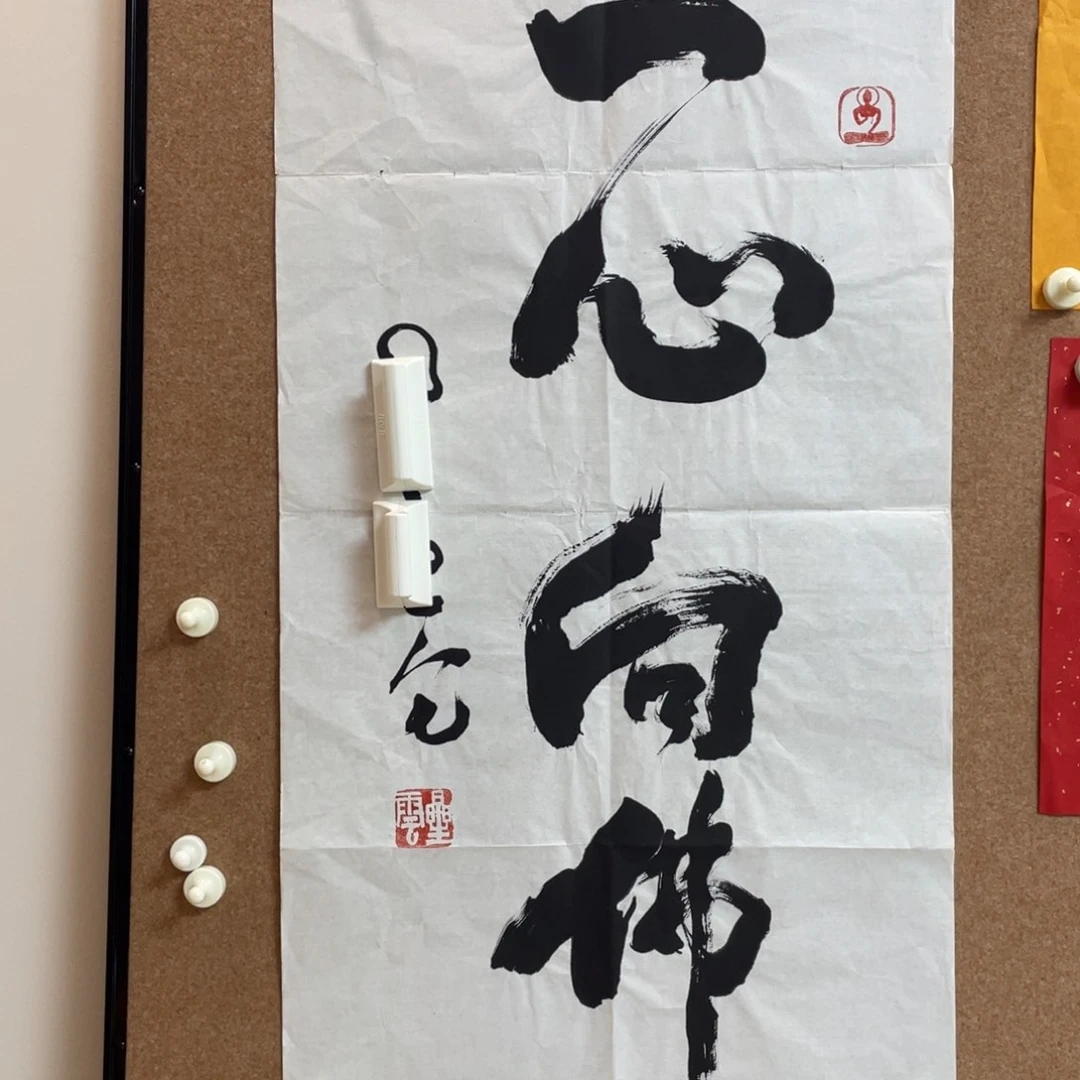 一心向佛
星雲